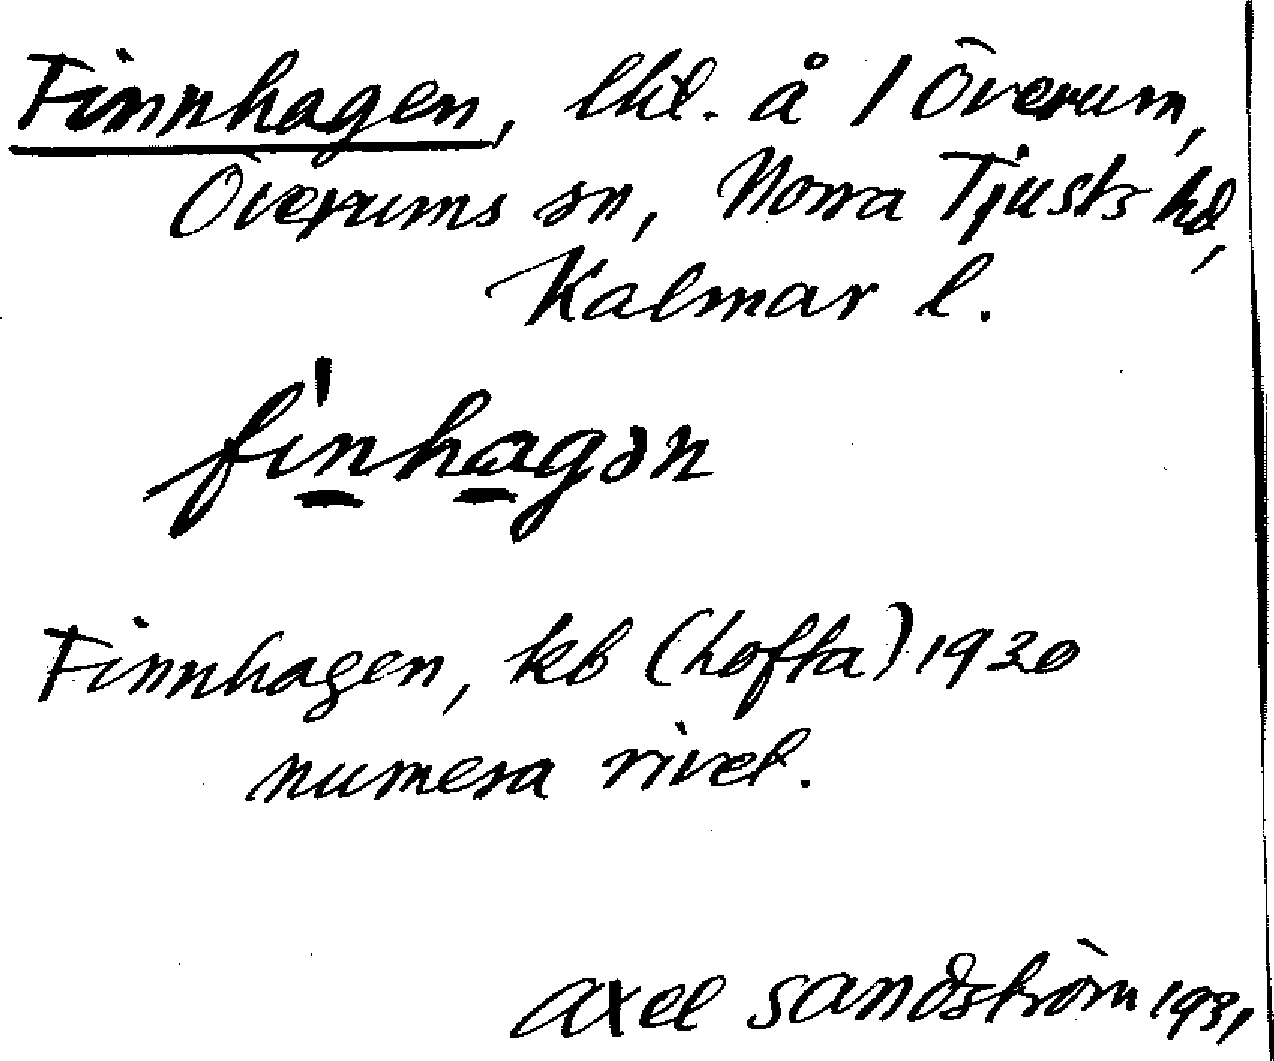 Finnhagen, lht. å 1 Överum,
Överums sn, Norra Tjusts hd,
Kalmar l.
fi̍nhagən
Finnhagen, kb (Lofta) 1930
numera rivet.
Axel Sandström 1931